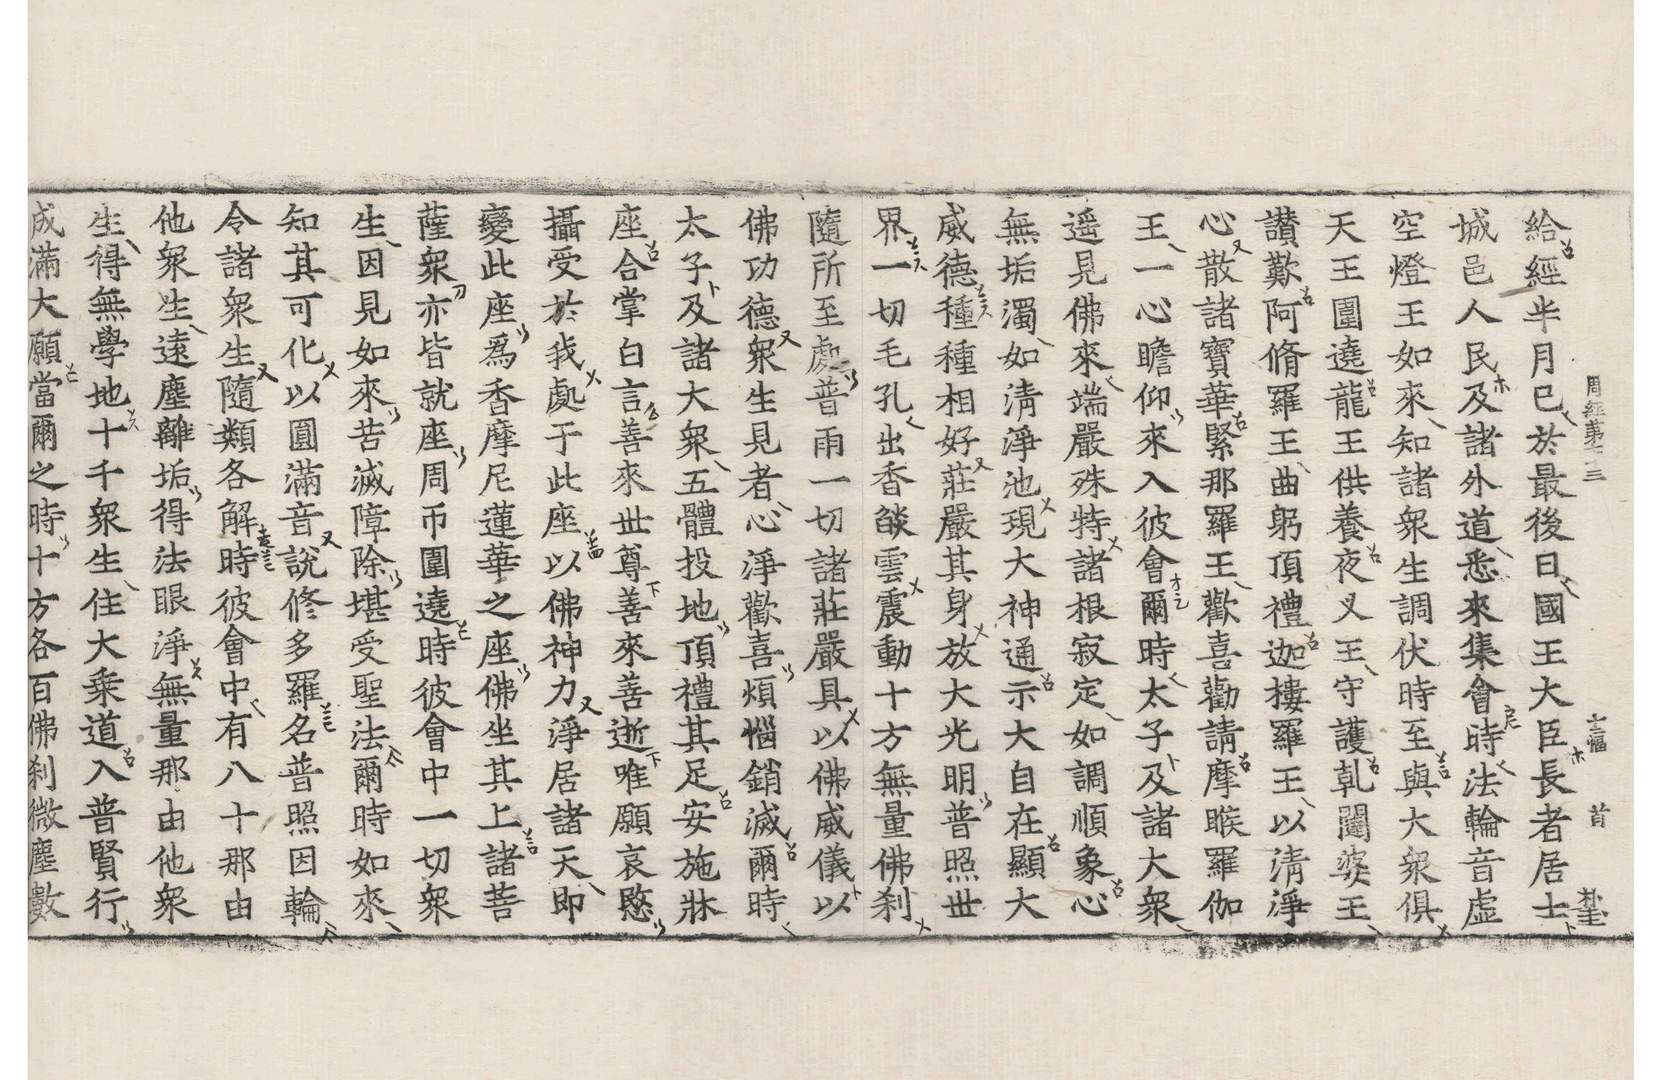 周經第七十三 十三幅 首
給經半月已於最後日國王大臣長者居士
城邑人民及諸外道悉來集會時法輪音虛
空燈王如來知諸衆生調伏時至與大衆俱
天王圍遶龍王供養夜叉王守護乹闥婆王
讃歎阿脩羅王曲躬頂禮迦樓羅王以清淨
心散諸寶華緊那羅王歡喜勸請摩睺羅伽
王一心瞻仰來入彼會爾時太子及諸大衆
遥見佛來端嚴殊特諸根寂定如調順象心
無垢濁如清淨池現大神通示大自在顯大
威德種種相好莊嚴其身放大光明普照世
界一切毛孔出香燄雲震動十方無量佛刹
隨所至處普雨一切諸莊嚴具以佛威儀以
佛功德衆生見者心淨歡喜煩惱銷滅爾時
太子及諸大衆五體投地頂禮其足安施牀
座合掌白言善來世尊善來善逝唯願哀愍
攝受於我處于此座以佛神力淨居諸天即
變此座爲香摩尼蓮華之座佛坐其上諸菩
薩衆亦皆就座周帀圍遶時彼會中一切衆
生因見如來苦滅障除堪受聖法爾時如來
知其可化以圓滿音說修多羅名普照因輪
令諸衆生隨類各解時彼會中有八十那由
他衆生遠塵離垢得法眼淨無量那由他衆
生得無學地十千衆生住大乘道入普賢行
成滿大願當爾之時十方各百佛刹微塵數